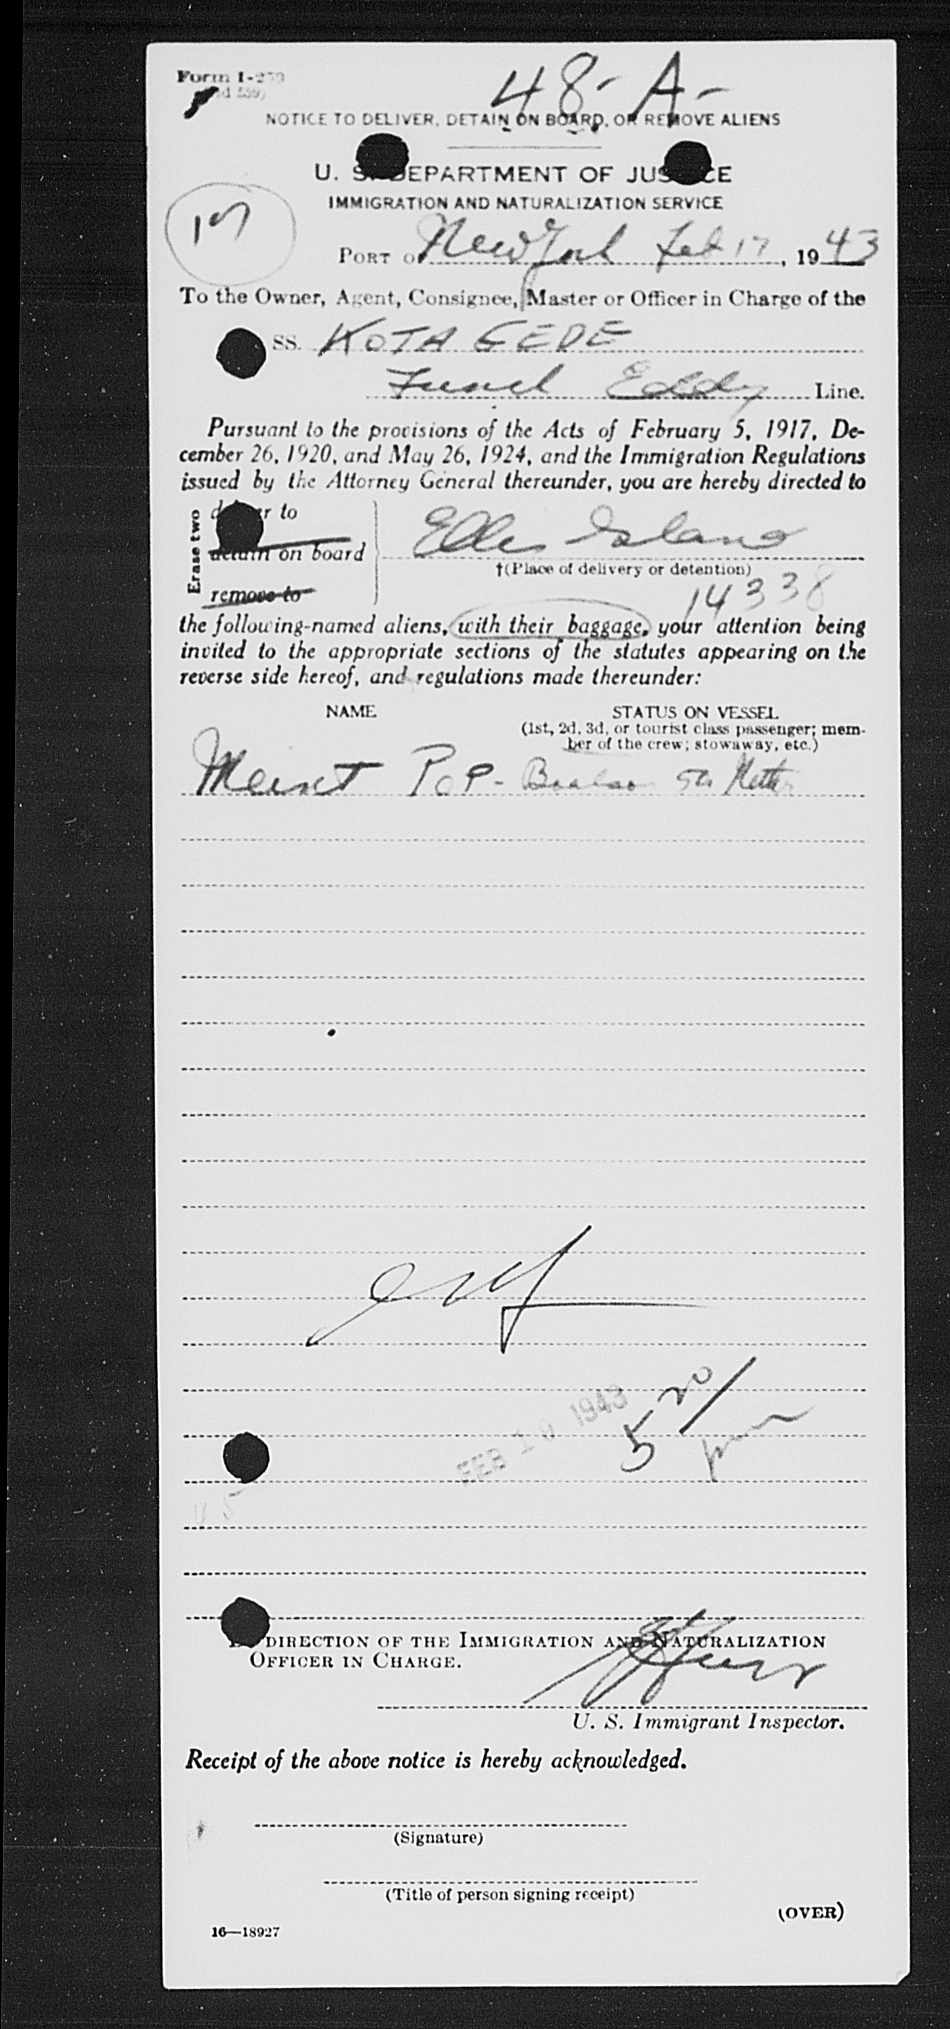 Form I-259
48-A-
NOTICE TO DELIVER, DETAIN ON BOARD, OR REMOVE ALIENS
U. S. DEPARTMENT OF JUSTICE
IMMIGRATION AND NATURALIZATION SERVICE
PORT of New York Feb 17, 1943
To the Owner, Agent, Consignee, Master or Officer in Charge of the
SS. KOTA GEDE
Funch Eddy Line.
Pursuant to the provisions of the Acts of February 5, 1917, De-
cember 26, 1920, and May 26, 1924, and the Immigration Regulations
issued by the Attorney General thereunder, you are hereby directed to
Erase two
deliver to
detain on board
remove to
Ellis Island
†(Place of delivery or detention)
14338
the following-named aliens, with their baggage, your attention being
invited to the appropriate sections of the statutes appearing on the
reverse side hereof, and regulations made thereunder:
NAME STATUS ON VESSEL
(1st, 2d, 3d, or tourist class passenger; mem-
ber of the crew; stowaway, etc.)
Meint Pop-
FEB 1943
5 20/
BY DIRECTION OF THE IMMIGRATION AND NATURALIZATION
OFFICER IN CHARGE.
U. S. Immigrant Inspector.
Receipt of the above notice is hereby acknowledged.
(Signature)
(Title of person signing receipt)
(OVER)
16—18927